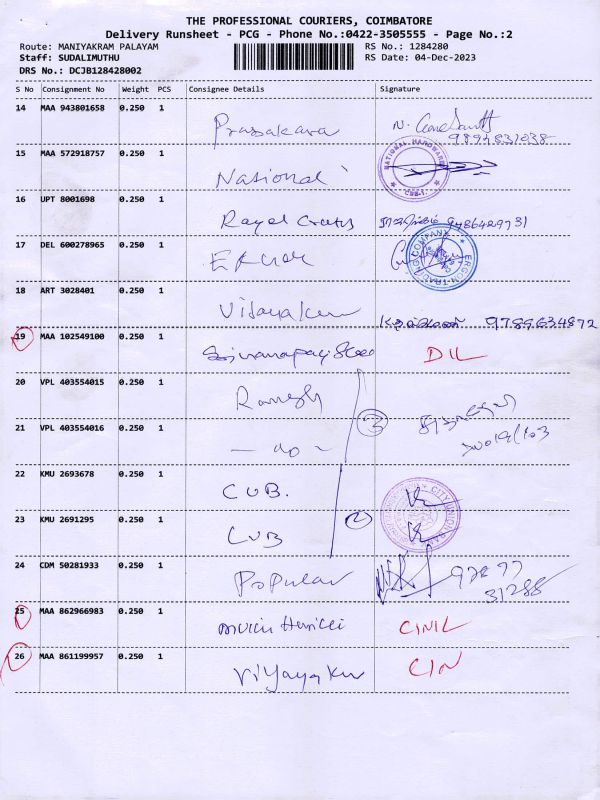 THE PROFESSIONAL COURIERS, COIMBATORE
Delivery Runsheet - PCG - Phone No.:0422-3505555 - Page No.:2
Route: MANIYAKRAM PALAYAM RS No.: 1284280
Staff: SUDALIMUTHU RS Date: 04-Dec-2023
DRS No.: DCJB128428002
S No Consignment No Weight PCS Consignee Details Signature
14 MAA 943801658 0.250 1
15 MAA 572918757 0.250 1 National NATIONAL HARDWARE
16 UPT 8001698 0.250 1 Royal
17 DEL 600278965 0.250 1 ERGON TRADING COMPANY
18 ART 3028401 0.250 1 Vijayakur 9789634872
19 MAA 102549100 0.250 1 DIL
20 VPL 403554015 0.250 1 Ramesh 3
21 VPL 403554016 0.250 1 - do -
22 KMU 2693678 0.250 1 CUB. CITY UNION
23 KMU 2691295 0.250 1 CUB 2
24 CDM 50281933 0.250 1 Popular 31288
25 MAA 862966983 0.250 1 CINIL
26 MAA 861199957 0.250 1 Viyayakur CIN